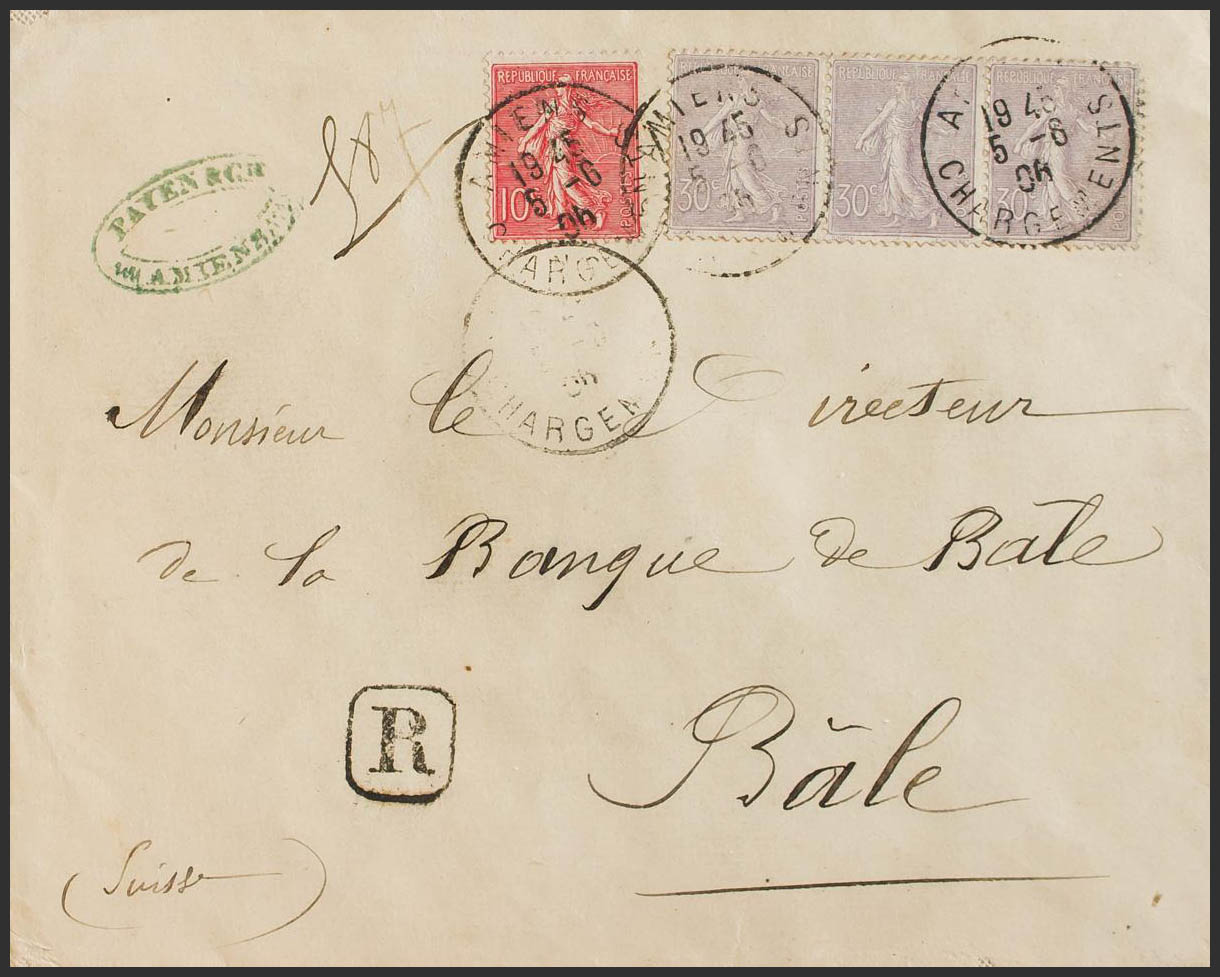 REPUBLIQUE FRANÇAISE
10
POSTES
REPUBLIQUE FRANÇAISE
30c
POSTES
REPUBLIQUE FRANÇAISE
30c
REPUBLIQUE FRANÇAISE
30c
AMIENS
19 45
5 -6
06
CHARGEMENTS
AMIENS
19 45
5 -6
06
19 45
5 -6
06
CHARGEMENTS
06
CHARGEM
PAYEN & CIE
AMIENS
Monsieur le Directeur
de la Banque de Bâle
R
Bâle
(Suisse)